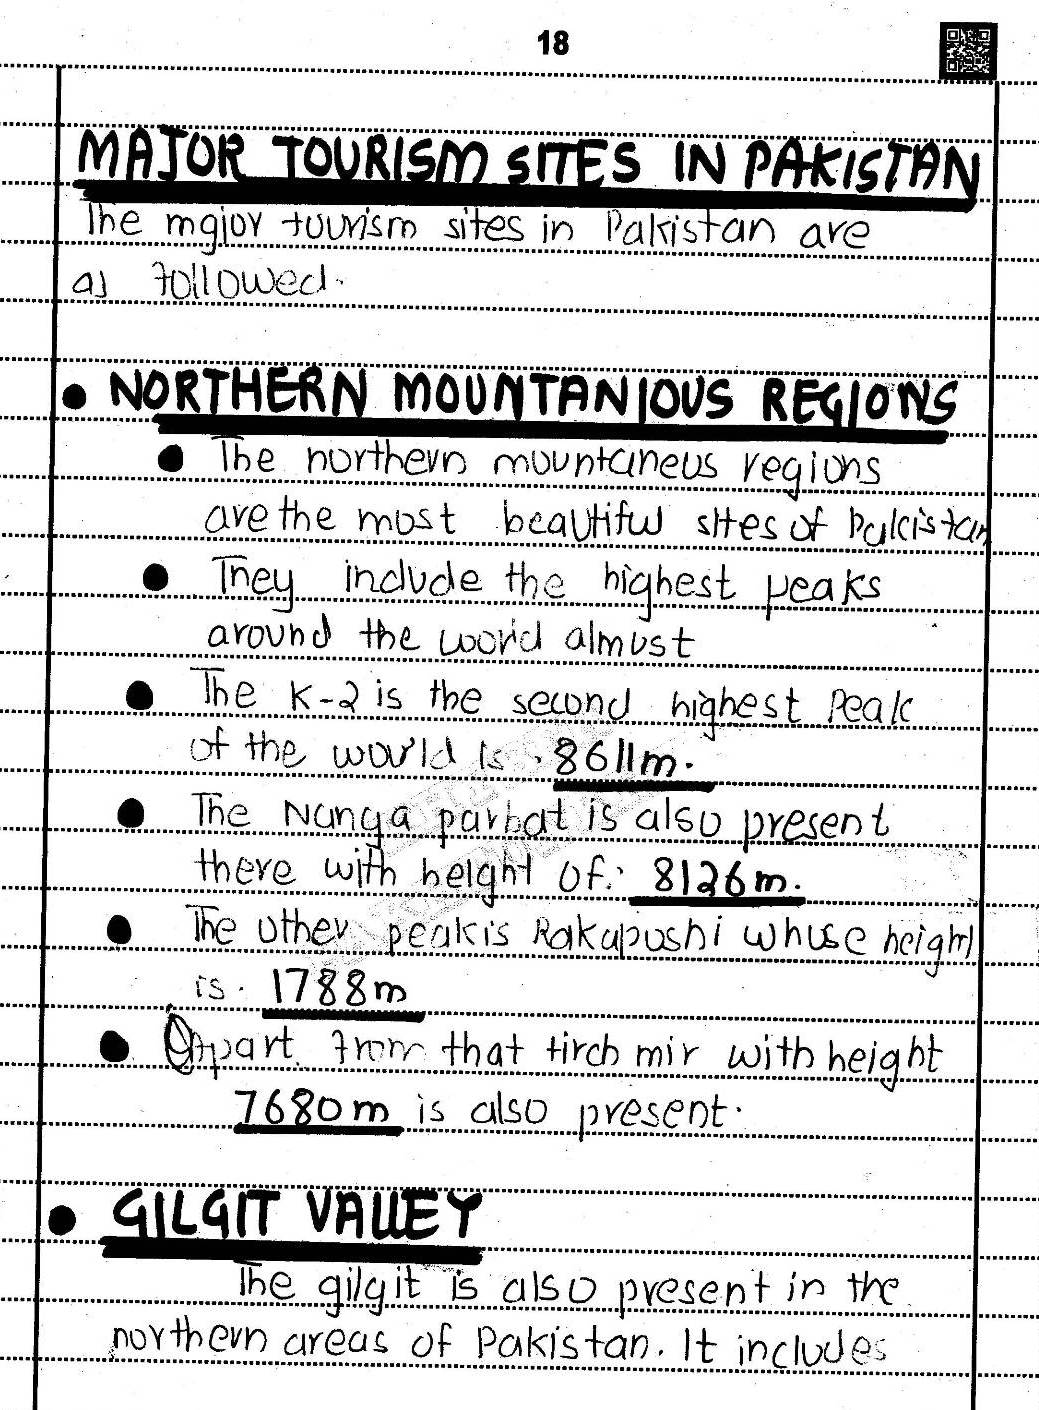 18
MAJOR TOURISM SITES IN PAKISTAN
The major tourism sites in Pakistan are
as followed.
• NORTHERN MOUNTANIOUS REGIONS
• The northern mountaneus regions
are the most beautiful sites of Pakistan
• They include the highest peaks
around the world almost
• The K-2 is the second highest Peak
of the world is. 8611m.
• The Nanga parbat is also present
there with height of: 8126m.
• The other peak is Rakaposhi whose height
is. 1788m
• Apart from that tirch mir with height
7680m is also present.
• GILGIT VALLEY
The gilgit is also present in the
northern areas of Pakistan. It includes